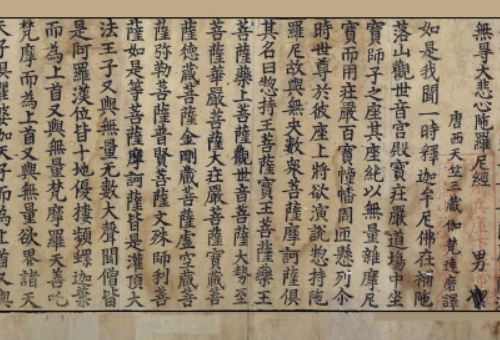 無㝵大悲心陁羅尼經
男
唐西天竺三藏伽梵達磨譯
如是我聞一時釋迦牟尼佛在補陁
落山觀世音宮殿寶莊嚴道場中坐
寶師子之座其座純以無量雜摩尼
寶而用莊嚴百寶幢幡周匝懸列尒
時世尊於彼座上將欲演說惣持陁
羅尼故與無央數衆菩薩摩訶薩俱
其名曰惣持王菩薩寶王菩薩藥王
菩薩藥上菩薩觀世音菩薩大勢至
菩薩華嚴菩薩大莊嚴菩薩寶藏菩
薩德藏菩薩金剛藏菩薩虛空藏菩
薩弥勒菩薩普賢菩薩文殊師利菩
薩如是等菩薩摩訶薩皆是灌頂大
法王子又與無量無數大聲聞僧皆
是阿羅漢位皆十地優樓頻螺迦葉
而為上首又與無量梵摩羅天善吒
梵摩而為上首又與無量欲界諸天
天子俱瞿婆伽天子而為上首又與